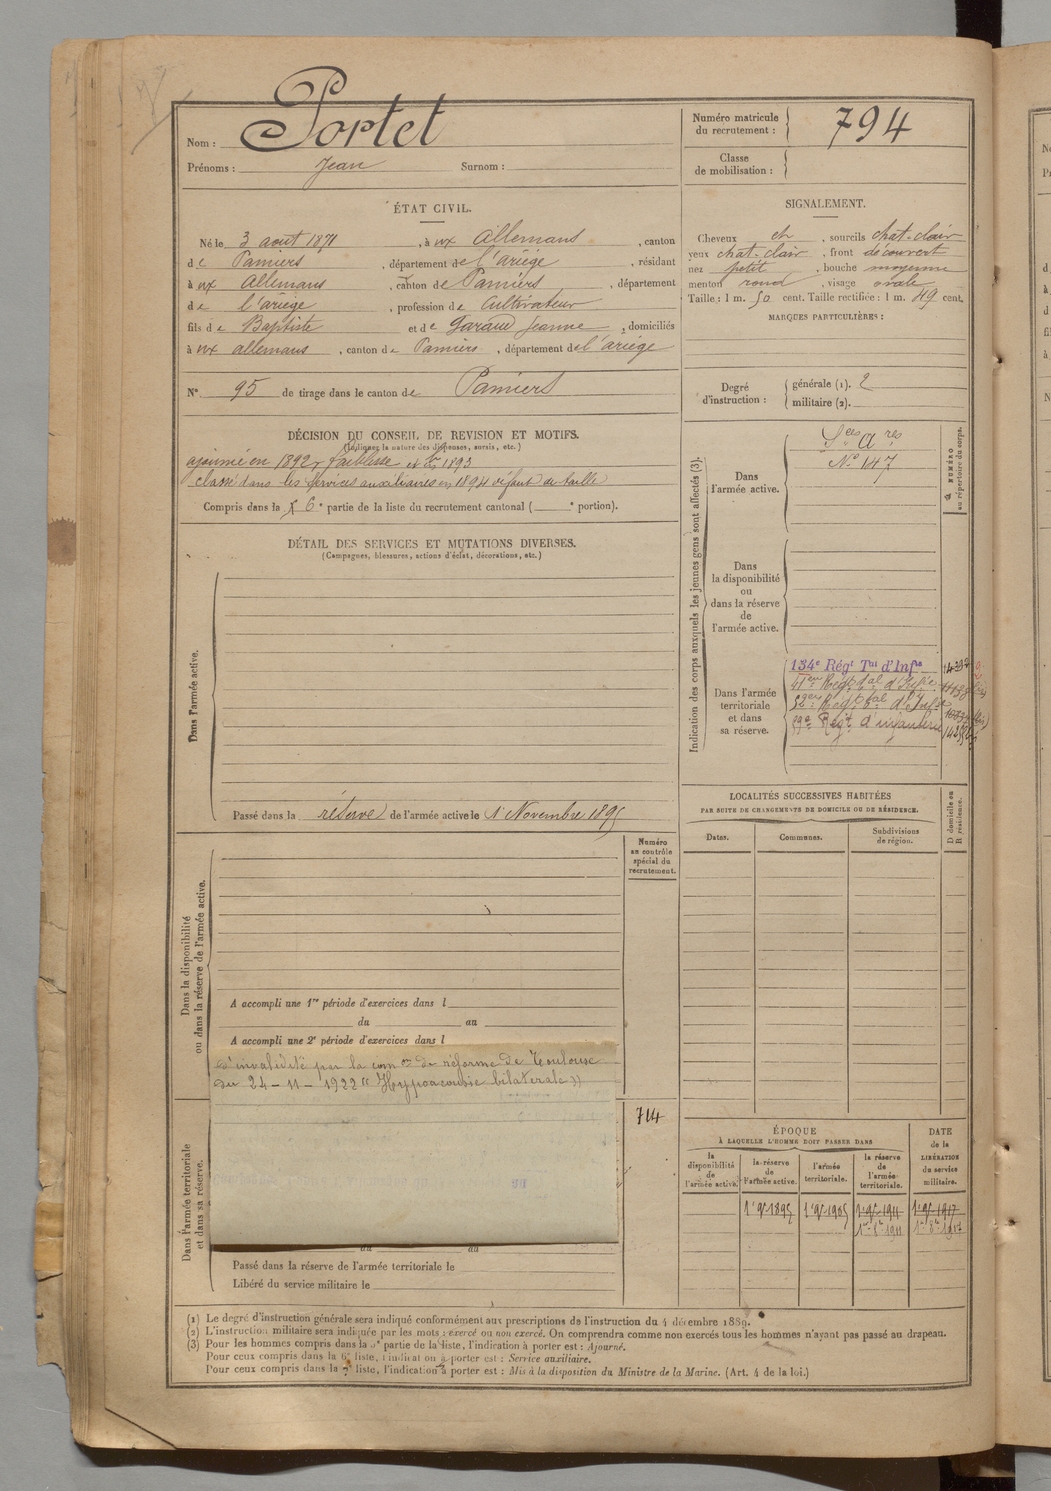 Nom : Portet
Prénoms : Jean Surnom :
Numéro matricule du recrutement : 794
Classe de mobilisation :
ÉTAT CIVIL.
Né le 3 août 1871, à vx Allemans, canton
de Pamiers, département de l'ariège, résidant
à vx Allemans, canton de Pamiers, département
de l'ariège, profession de Cultivateur
fils de Baptiste et de Garaud Jeanne, domiciliés
à vx allemans, canton de Pamiers, département de l'ariège
N° 95 de tirage dans le canton de Pamiers
SIGNALEMENT.
Cheveux ch, sourcils chat-clair
yeux chat-clair, front découvert
nez petit, bouche moyenne
menton rond, visage ovale
Taille : 1 m. 50 cent. Taille rectifiée : 1 m. 49 cent.
MARQUES PARTICULIÈRES :
Degré d'instruction :
générale (1). 2
militaire (2).
DÉCISION DU CONSEIL DE REVISION ET MOTIFS.
(Indiquer la nature des dispenses, sursis, etc.)
ajourné en 1892, faiblesse et 1893
classé dans les services auxiliaires en 1894 défaut de taille
Compris dans la 6e partie de la liste du recrutement cantonal ( e portion).
DÉTAIL DES SERVICES ET MUTATIONS DIVERSES.
(Campagnes, blessures, actions d'éclat, décorations, etc.)
Dans l'armée active.
Passé dans la réserve de l'armée active le 1 Novembre 1895
Indication des corps auxquels les jeunes gens sont affectés (3).
NUMÉRO au répertoire du corps.
Dans l'armée active.
Sces Ares
N° 147
Dans la disponibilité ou dans la réserve de l'armée active.
Dans l'armée territoriale et dans sa réserve.
134e Régt Tal d'Infie
LOCALITÉS SUCCESSIVES HABITÉES
PAR SUITE DE CHANGEMENTS DE DOMICILE OU DE RÉSIDENCE.
Dates.
Communes.
Subdivisions de région.
D domicile ou R résidence.
Numéro au contrôle spécial du recrutement.
Dans la disponibilité ou dans la réserve de l'armée active.
A accompli une 1re période d'exercices dans l
du au
A accompli une 2e période d'exercices dans l
d'invalidité par la comon de réforme de Toulouse
du 24-11-1922 "Hypoacousie bilatérale"
714
Dans l'armée territoriale et dans sa réserve.
du au
Passé dans la réserve de l'armée territoriale le
Libéré du service militaire le
ÉPOQUE
À LAQUELLE L'HOMME DOIT PASSER DANS
la disponibilité de l'armée active.
la réserve de l'armée active.
l'armée territoriale.
la réserve de l'armée territoriale.
DATE de la LIBÉRATION du service militaire.
1er 9bre 1895 1er 9bre 1905 1er 9bre 1911 1er 9bre 1917
1er 8bre 1911 1er 8bre 1917
(1) Le degré d'instruction générale sera indiqué conformément aux prescriptions de l'instruction du 4 décembre 1889.
(2) L'instruction militaire sera indiquée par les mots : exercé ou non exercé. On comprendra comme non exercés tous les hommes n'ayant pas passé au drapeau.
(3) Pour les hommes compris dans la 5e partie de la liste, l'indication à porter est : Ajourné.
Pour ceux compris dans la 6e liste, l'indication à porter est : Service auxiliaire.
Pour ceux compris dans la 7e liste, l'indication à porter est : Mis à la disposition du Ministre de la Marine. (Art. 4 de la loi.)